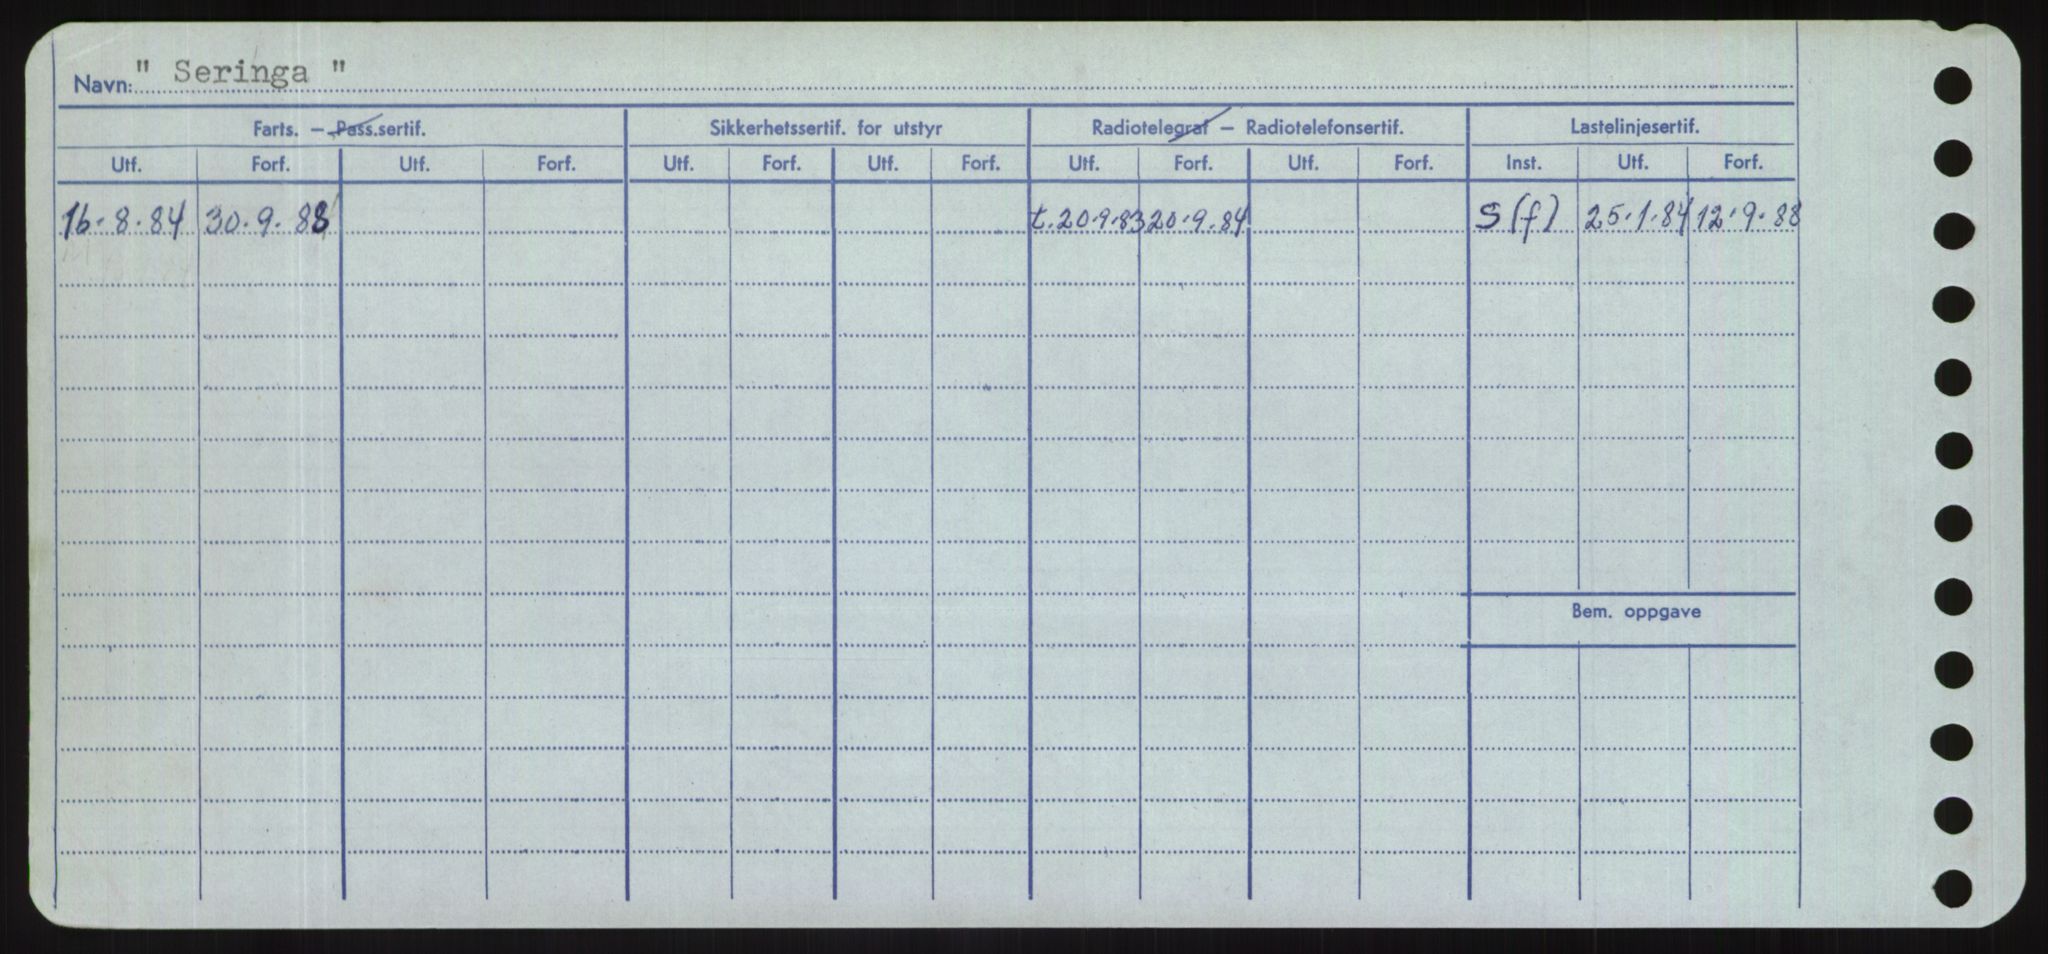 Navn: " Seringa "
Farts. — Pass.sertif. Sikkerhetssertif. for utstyr Radiotelegraf — Radiotelefonsertif. Lastelinjesertif.
Utf. Forf. Utf. Forf. Utf. Forf. Utf. Forf. Utf. Forf. Utf. Forf. Inst. Utf. Forf.
16.8.84 30.9.88 t.20.9.83 20.9.84 S(f) 25.1.84 12.9.88
Bem. oppgave